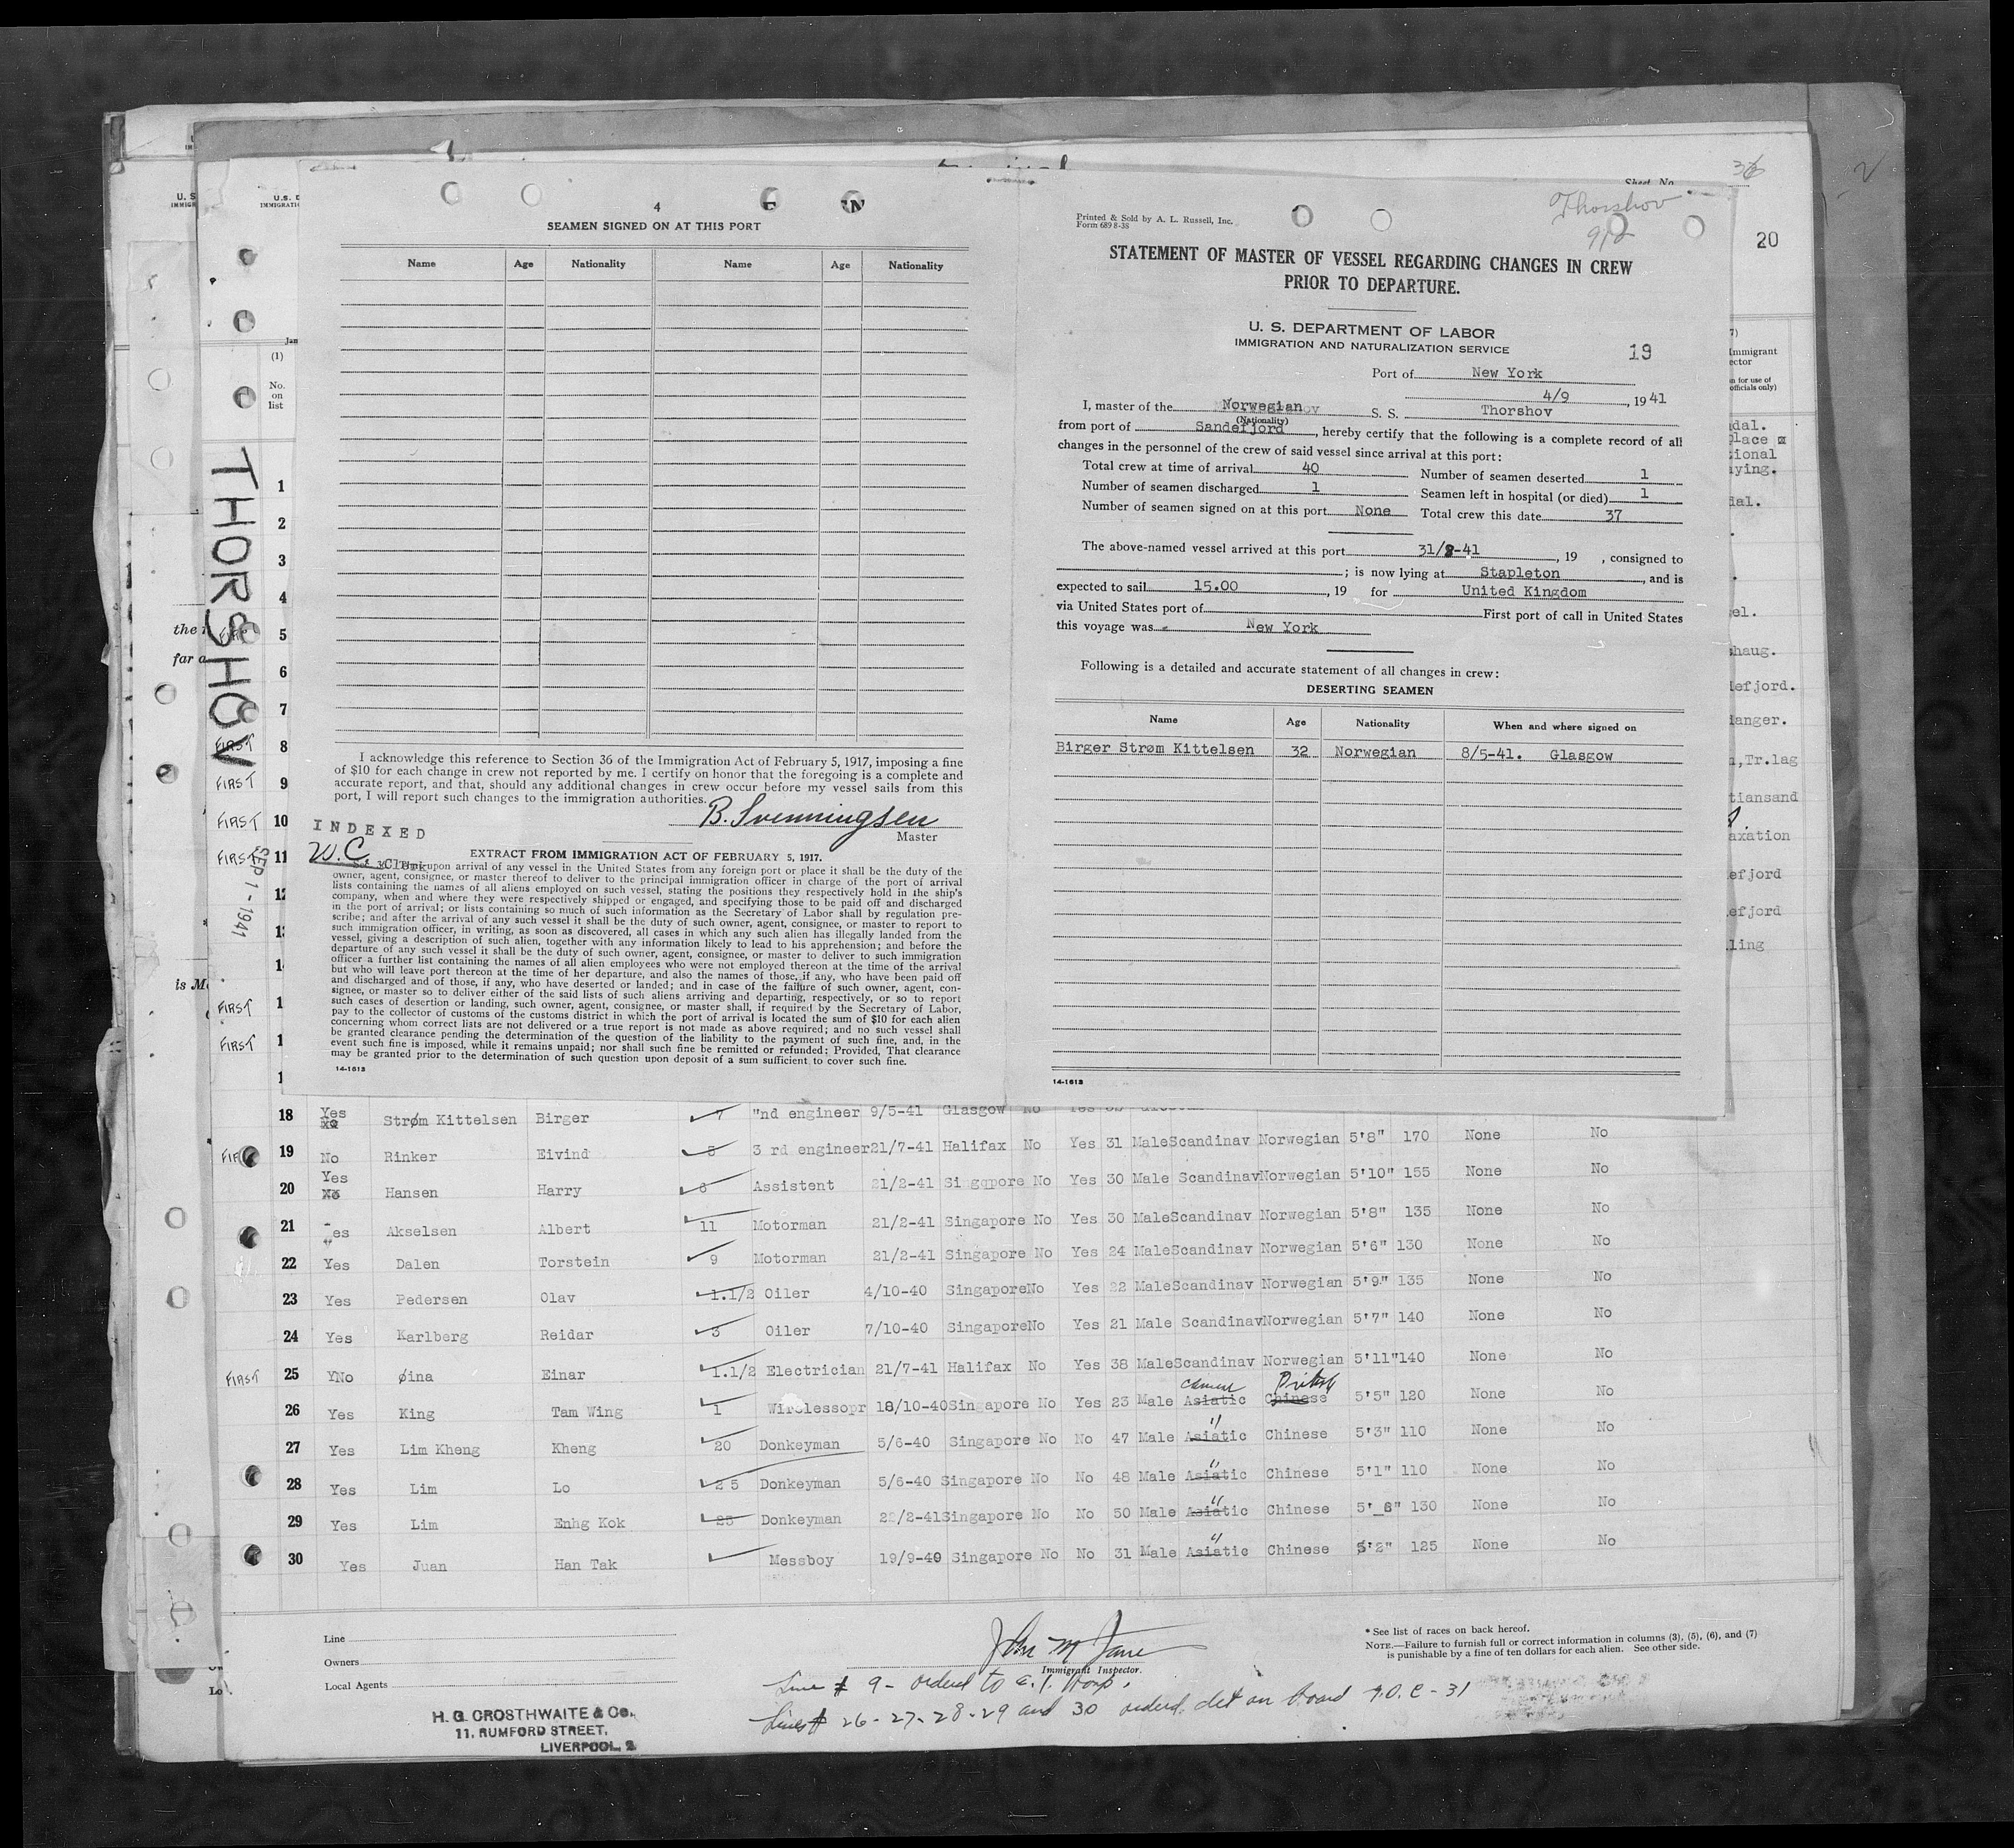 4
SEAMEN SIGNED ON AT THIS PORT
Name Age Nationality Name Age Nationality
I acknowledge this reference to Section 36 of the Immigration Act of February 5, 1917, imposing a fine
of $10 for each change in crew not reported by me. I certify on honor that the foregoing is a complete and
accurate report, and that, should any additional changes in crew occur before my vessel sails from this
port, I will report such changes to the immigration authorities.
B. Svenningsen
Master
INDEXED
W.C
Clerk
EXTRACT FROM IMMIGRATION ACT OF FEBRUARY 5, 1917.
upon arrival of any vessel in the United States from any foreign port or place it shall be the duty of the
owner, agent, consignee, or master thereof to deliver to the principal immigration officer in charge of the port of arrival
lists containing the names of all aliens employed on such vessel, stating the positions they respectively hold in the ship's
company, when and where they were respectively shipped or engaged, and specifying those to be paid off and discharged
in the port of arrival; or lists containing so much of such information as the Secretary of Labor shall by regulation pre-
scribe; and after the arrival of any such vessel it shall be the duty of such owner, agent, consignee, or master to report to
such immigration officer, in writing, as soon as discovered, all cases in which any such alien has illegally landed from the
vessel, giving a description of such alien, together with any information likely to lead to his apprehension; and before the
departure of any such vessel it shall be the duty of such owner, agent, consignee, or master to deliver to such immigration
officer a further list containing the names of all alien employees who were not employed thereon at the time of the arrival
but who will leave port thereon at the time of her departure, and also the names of those, if any, who have been paid off
and discharged and of those, if any, who have deserted or landed; and in case of the failure of such owner, agent, con-
signee, or master so to deliver either of the said lists of such aliens arriving and departing, respectively, or so to report
such cases of desertion or landing, such owner, agent, consignee, or master shall, if required by the Secretary of Labor,
pay to the collector of customs of the customs district in which the port of arrival is located the sum of $10 for each alien
concerning whom correct lists are not delivered or a true report is not made as above required; and no such vessel shall
be granted clearance pending the determination of the question of the liability to the payment of such fine, and, in the
event such fine is imposed, while it remains unpaid; nor shall such fine be remitted or refunded; Provided, That clearance
may be granted prior to the determination of such question upon deposit of a sum sufficient to cover such fine.
14-1613
Sheet No. 36
Thorshov
9/2
20
Printed & Sold by A. L. Russell, Inc.
Form 689 8-38
STATEMENT OF MASTER OF VESSEL REGARDING CHANGES IN CREW
PRIOR TO DEPARTURE.
U. S. DEPARTMENT OF LABOR
IMMIGRATION AND NATURALIZATION SERVICE
19
Port of New York
4/9, 1941
I, master of the Norwegian S. S. Thorshov
(Nationality)
from port of Sandefjord, hereby certify that the following is a complete record of all
changes in the personnel of the crew of said vessel since arrival at this port:
Total crew at time of arrival 40 Number of seamen deserted 1
Number of seamen discharged 1 Seamen left in hospital (or died) 1
Number of seamen signed on at this port None Total crew this date 37
The above-named vessel arrived at this port 31/8-41, 19 , consigned to
; is now lying at Stapleton, and is
expected to sail 15.00, 19 for United Kingdom
via United States port of First port of call in United States
this voyage was New York
Following is a detailed and accurate statement of all changes in crew:
DESERTING SEAMEN
Name Age Nationality When and where signed on
Birger Strøm Kittelsen 32 Norwegian 8/5-41. Glasgow
14-1613
THORSHOV
SEP 1 - 1941
(1)
No.
on
list
1
2
3
4
5
6
7
FIRST 8
FIRST 9
FIRST 10
FIRST 11
FIRST
FIRST
18 Yes Strøm Kittelsen Birger 7 "nd engineer 9/5-41 Glasgow No Yes
19 No Rinker Eivind 5 3 rd engineer 21/7-41 Halifax No Yes 31 Male Scandinav Norwegian 5'8" 170 None No
20 Yes Hansen Harry 6 Assistent 21/2-41 Singapore No Yes 30 Male Scandinav Norwegian 5'10" 155 None No
21 Yes Akselsen Albert 11 Motorman 21/2-41 Singapore No Yes 30 Male Scandinav Norwegian 5'8" 135 None No
22 Yes Dalen Torstein 9 Motorman 21/2-41 Singapore No Yes 24 Male Scandinav Norwegian 5'6" 130 None No
23 Yes Pedersen Olav 1.1/2 Oiler 4/10-40 Singapore No Yes 22 Male Scandinav Norwegian 5'9" 135 None No
24 Yes Karlberg Reidar 3 Oiler 7/10-40 Singapore No Yes 21 Male Scandinav Norwegian 5'7" 140 None No
FIRST 25 YNo Øina Einar 1.1/2 Electrician 21/7-41 Halifax No Yes 38 Male Scandinav Norwegian 5'11" 140 None No
26 Yes King Tam Wing 1 Wirelessopr 18/10-40 Singapore No Yes 23 Male Asiatic Chinese Chinese British 5'5" 120 None No
27 Yes Lim Kheng Kheng 20 Donkeyman 5/6-40 Singapore No No 47 Male Asiatic " Chinese 5'3" 110 None No
28 Yes Lim Lo 25 Donkeyman 5/6-40 Singapore No No 48 Male Asiatic " Chinese 5'1" 110 None No
29 Yes Lim Enhg Kok 25 Donkeyman 22/2-41 Singapore No No 50 Male Asiatic " Chinese 5'_6" 130 None No
30 Yes Juan Han Tak Messboy 19/9-40 Singapore No No 31 Male Asiatic " Chinese 5'2" 125 None No
Line
Owners
Local Agents
H. G. CROSTHWAITE & Co.
11, RUMFORD STREET,
LIVERPOOL, 2.
Immigrant Inspector.
Line # 9 - ordered to E. I. Hosp.
Lines # 26-27-28-29 and 30 ordered det on board
* See list of races on back hereof.
NOTE.—Failure to furnish full or correct information in columns (3), (5), (6), and (7)
is punishable by a fine of ten dollars for each alien. See other side.